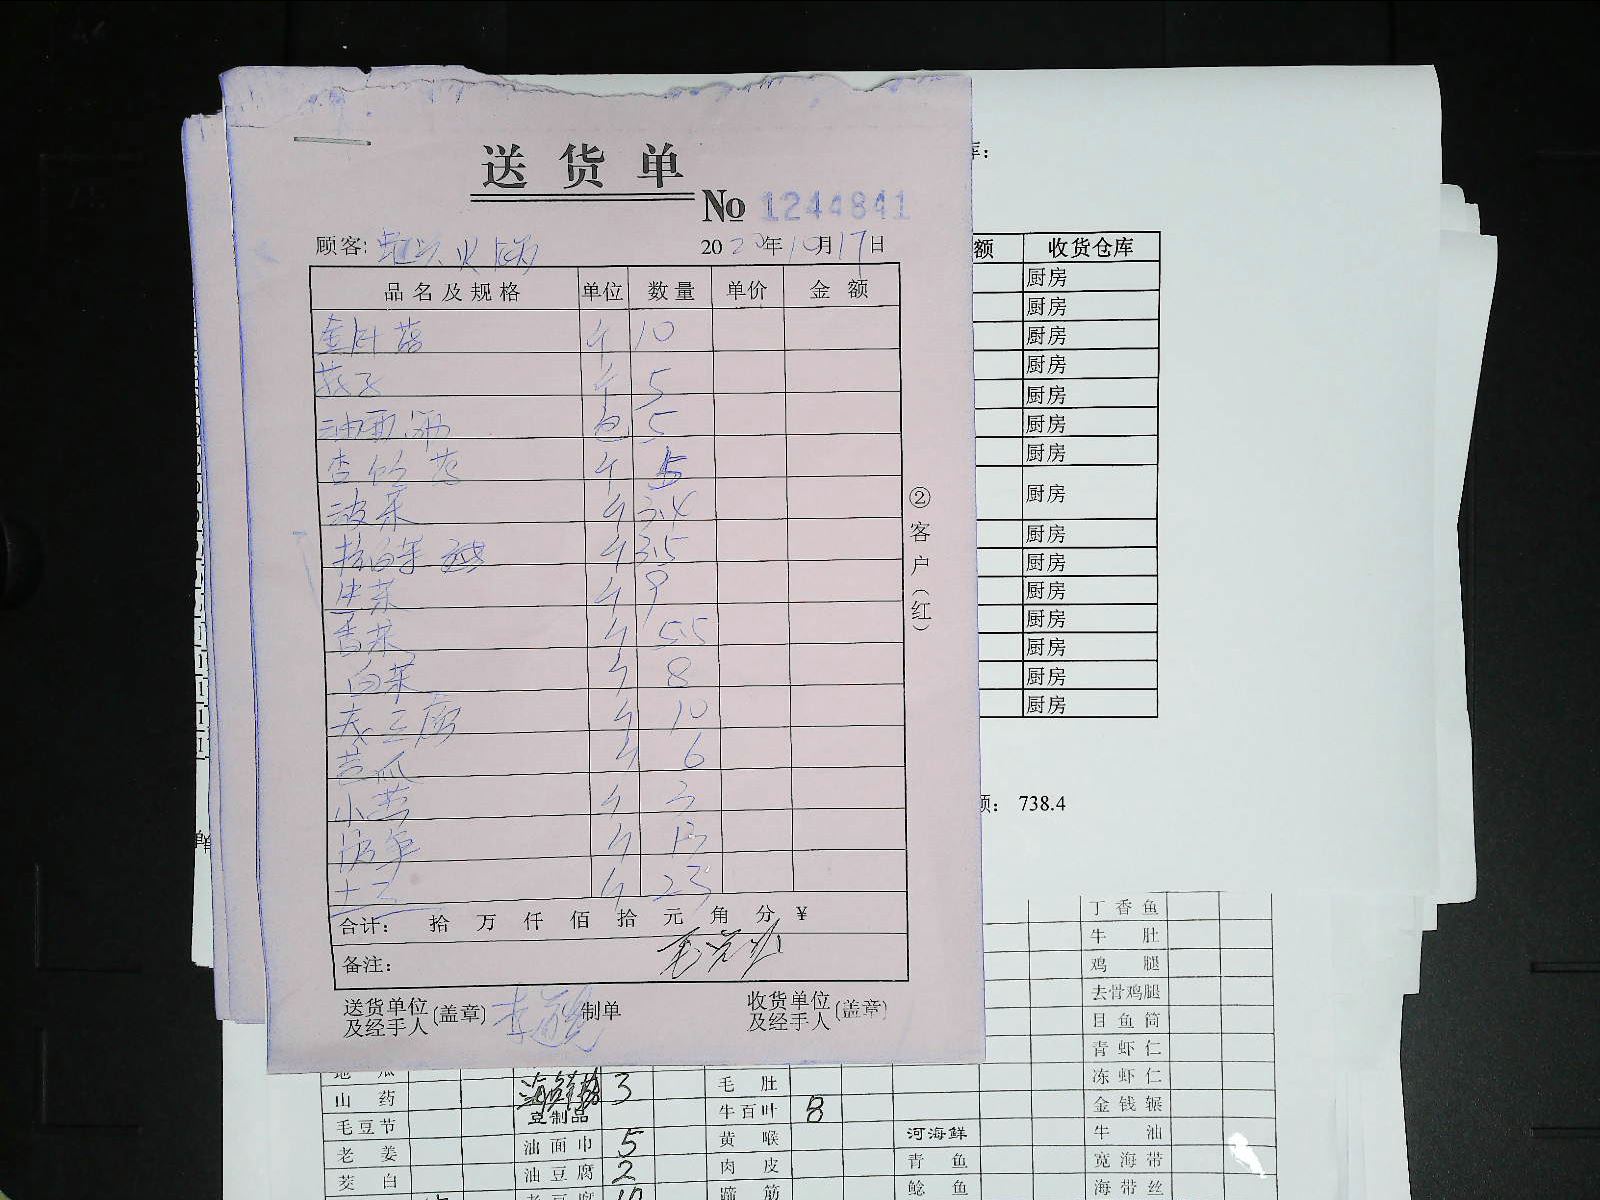 送货单
No 1244841
顾客: 火锅 2020年10月17日
品名及规格 单位 数量 单价 金额
金针菇 斤 10
茄子 斤 5
油面筋 包 5
杏鲍菇 斤 5
菠菜 斤 3.4
斤 3.5
生菜 斤 9
香菜 斤 5.5
白菜 斤 8
老豆腐 斤 10
黄瓜 斤 6
小葱 斤 3
斤 13
土豆 斤 23
合计: 拾 万 仟 佰 拾 元 角 分 ¥
备注:
送货单位及经手人(盖章) 李 制单 收货单位及经手人(盖章)
②客户(红)
库:
额 收货仓库
厨房
厨房
厨房
厨房
厨房
厨房
厨房
厨房
厨房
厨房
厨房
厨房
厨房
厨房
厨房
额: 738.4
丁香鱼
牛肚
鸡腿
去骨鸡腿
目鱼筒
青虾仁
地瓜 3 毛肚 冻虾仁
山药 豆制品 牛百叶 8 金钱辗
毛豆节 油面巾 5 黄喉 河海鲜 牛油
老姜 油豆腐 2 肉皮 青鱼 宽海带
茭白 老豆腐 10 蹄筋 鲶鱼 海带丝